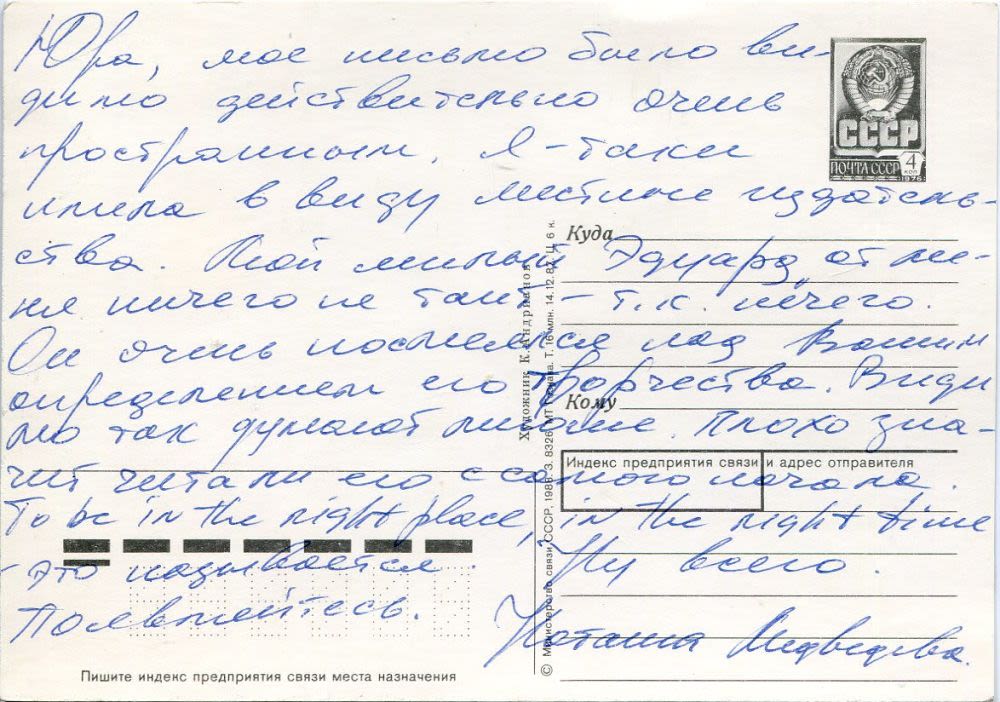 Юра, мое письмо было ви-
димо действительно очень
пространным. Я-таки
имела в виду местные издатель-
ства. Мой милый Эдуард от ме-
ня ничего не таит – т.к. нечего.
Он очень посмеялся над Вашим
определением его творчества. Види
мо так думают многие. Плохо зна-
чит читали его с самого начала.
To be in the right place, in the right time
- это называется. Ну всего.
Наташа Медведева.
СССР
ПОЧТА СССР
4
КОП
1976
Куда
Кому
Индекс предприятия связи и адрес отправителя
Художник К. Андрианов
© Министерство связи СССР, 1988. З. 8326. МТ Гознака. Т. 16 млн. 14.12.87. Ц. 6 к.
Пишите индекс предприятия связи места назначения